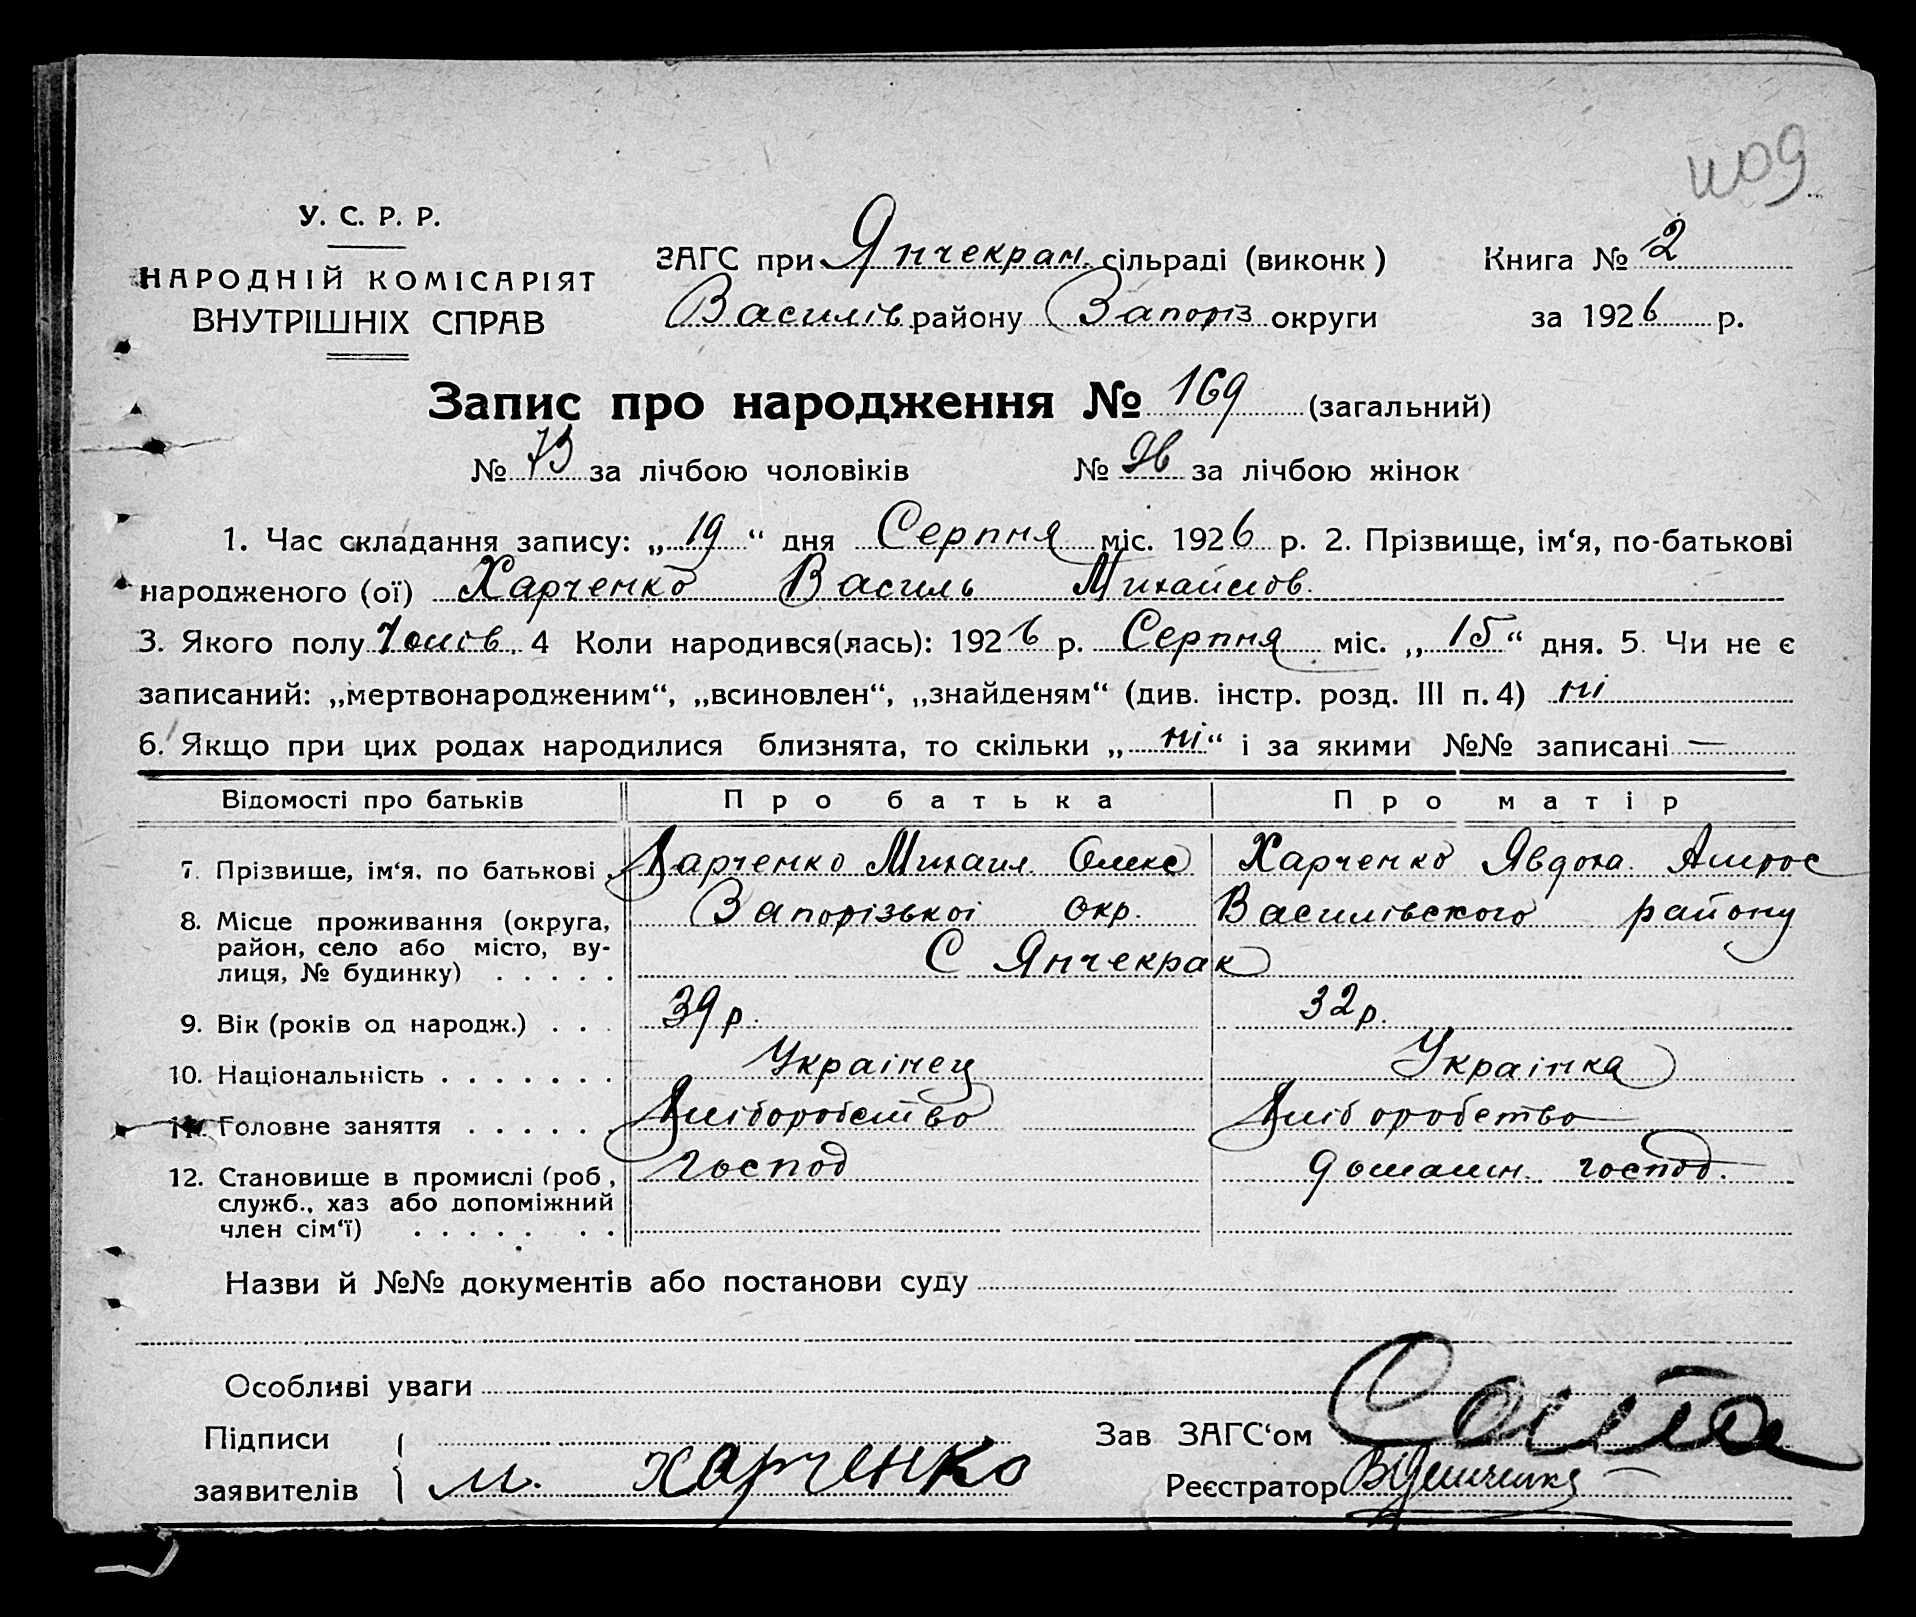 1109
У. С. Р. Р.
НАРОДНІЙ КОМІСАРІЯТ
ВНУТРІШНІХ СПРАВ
ЗАГС при Янчекрак. сільраді (виконк )
Василів. району Запоріз округи
Книга № 2
за 1926 р.
Запис про народження № 169 (загальний)
№ 73 за лічбою чоловіків № 96 за лічбою жінок
1. Час складання запису: „ 19 “ дня Серпня міс. 1926 р. 2. Прізвище, ім‘я, по-батькові
народженого (ої) Харченко Василь Михайлов.
3. Якого полу Чолів. 4 Коли народився(лась): 1926 р. Серпня міс. „ 15 “ дня. 5. Чи не є
записаний: „мертвонародженим“, „всиновлен“, „знайденям“ (див. інстр. розд. III п. 4) ні
6. Якщо при цих родах народилися близнята, то скільки „ ні “ і за якими №№ записані —
Відомості про батьків Про батька Про матір
7. Прізвище, ім‘я, по батькові . Харченко Михаил Олекс Харченко Явдоха. Амврос
8. Місце проживання (округа, Запорізької окр. Василівского району
район, село або місто, ву-
лиця, № будинку) . . . . . С Янчекрак
9. Вік (років од народж.) . . . 39 р. 32 р.
10. Національність . . . . . . . Українец Українка
11. Головне заняття . . . . . . Хліборобство Хліборобство
12. Становище в промислі (роб , Господ домашн. господ.
служб., хаз або допоміжний
член сім‘ї) . . . . . . .
Назви й №№ документів або постанови суду
Особливі уваги
Підписи
заявителів м. харченко
Зав ЗАГС‘ом
Реєстратор